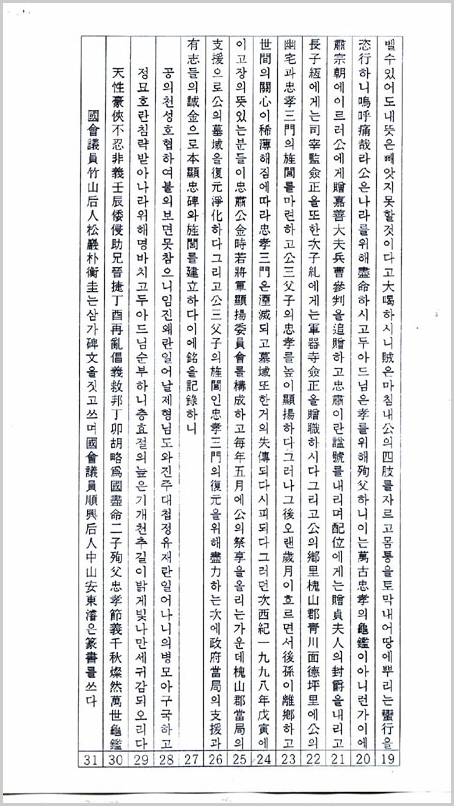 벨수있어도내뜻은빼앗지못할것이다고大喝하시니賊은마침내公의四肢를자르고몸통을토막내어땅에뿌리는蠻行을
恣行하니嗚呼痛哉라公은나라를위해盡命하시고두아드님은孝를위해殉父하니이는萬古忠孝의龜鑑이아니런가이에
肅宗朝에이르러公에게贈嘉善大夫兵曹參判을追贈하고忠肅이란諡號를내리며配位에게는贈貞夫人의封爵을내리고
長子 에게는司宰監僉正을또한次子 에게는軍器寺僉正을贈職하시다그리고公의鄕里槐山郡靑川面德坪里에公의
幽宅과忠孝三門의旌閭를마련하고公三父子의忠孝를높이顯揚하다그러나그後오랜歲月이흐르면서後孫이離鄕하고
世間의關心이稀薄해짐에따라忠孝三門은湮滅되고墓域또한거의失傳되다시피되다그러던次西紀一九九八年戊寅에
이고장의뜻있는분들이忠肅公金時若將軍顯揚委員會를構成하고每年五月에公의祭享을올리는가운데槐山郡當局의
支援으로公의墓域을復元淨化하다그리고公三父子의旌閭인忠孝三門의復元을위해盡力하는次에政府當局의支援과
有志들의誠金으로本顯忠碑와旌閭를建立하다이에銘을記錄하니
공의천성호협하여불의보면못참으니임진왜란일어날제형님도와진주대첩정유재란일어나니의병모아구국하고
정묘호란침략받아나라위해명바치고두아드님순부하니충효절의높은기개천추길이밝게빛나만세귀감되오리다
天性豪俠不忍非義壬辰倭侵助兄晉捷丁酉再亂倡義救邦丁卯胡略爲國盡命二子殉父忠孝節義千秋燦然萬世龜鑑
國會議員竹山后人松巖朴衡圭는삼가碑文을짓고쓰며國會議員順興后人中山安東濬은篆書를쓰다
19 20 21 22 23 24 25 26 27 28 29 30 31